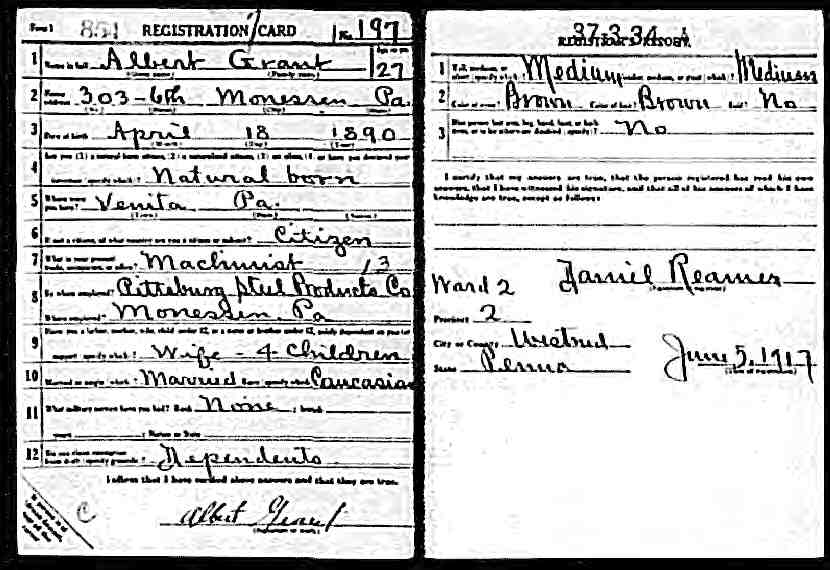 Form 1 851 REGISTRATION CARD No. 197
1 Name in full Albert Grant Age in yrs 27
(Given name) (Family name)
2 Home address 303-6th Monessen Pa.
(No.) (Street) (City) (State)
3 Date of birth April 18 1890
(Month) (Day) (Year)
4 Are you (1) a natural born citizen, (2) a naturalized citizen, (3) an alien, (4) or have you declared your
intention (specify which)? Natural born
5 Where were you born? Venita Pa.
(Town) (State) (Nation)
6 If not a citizen, of what country are you a citizen or subject? Citizen
7 What is your present trade, occupation, or office? Machinist 13
8 By whom employed? Pittsburg Steel Products Co
Where employed? Monessen, Pa
9 Have you a father, mother, wife, child under 12, or a sister or brother under 12, solely dependent on you for
support (specify which)? Wife - 4 - Children
10 Married or single (which)? Married Race (specify which)? Caucasian
11 What military service have you had? Rank None ; branch
years ; Nation or State
12 Do you claim exemption from draft (specify grounds)? Dependents
I affirm that I have verified above answers and that they are true.
C
Albert Grant
(Signature or mark)
37-3-34 A
REGISTRAR'S REPORT
1 Tall, medium, or short (specify which)? Medium Slender, medium, or stout (which)? Medium
2 Color of eyes? Brown Color of hair? Brown Bald? No
3 Has person lost arm, leg, hand, foot, or both
eyes, or is he otherwise disabled (specify)? No
I certify that my answers are true, that the person registered has read his own
answers, that I have witnessed his signature, and that all of his answers of which I have
knowledge are true, except as follows:
Ward 2 Daniel Reamer
(Signature of registrar)
Precinct 2
City or County Westmd
State Penna June 5, 1917
(Date of registration)